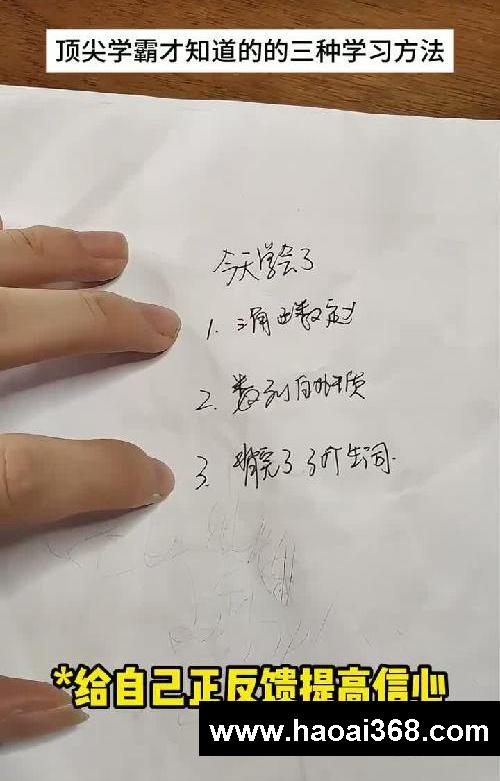 顶尖学霸才知道的的三种学习方法
今天学会了
1. 三角函数定义
2. 数列的性质
3. 背完了3个生词.
*给自己正反馈提高信心
www.haoai368.com